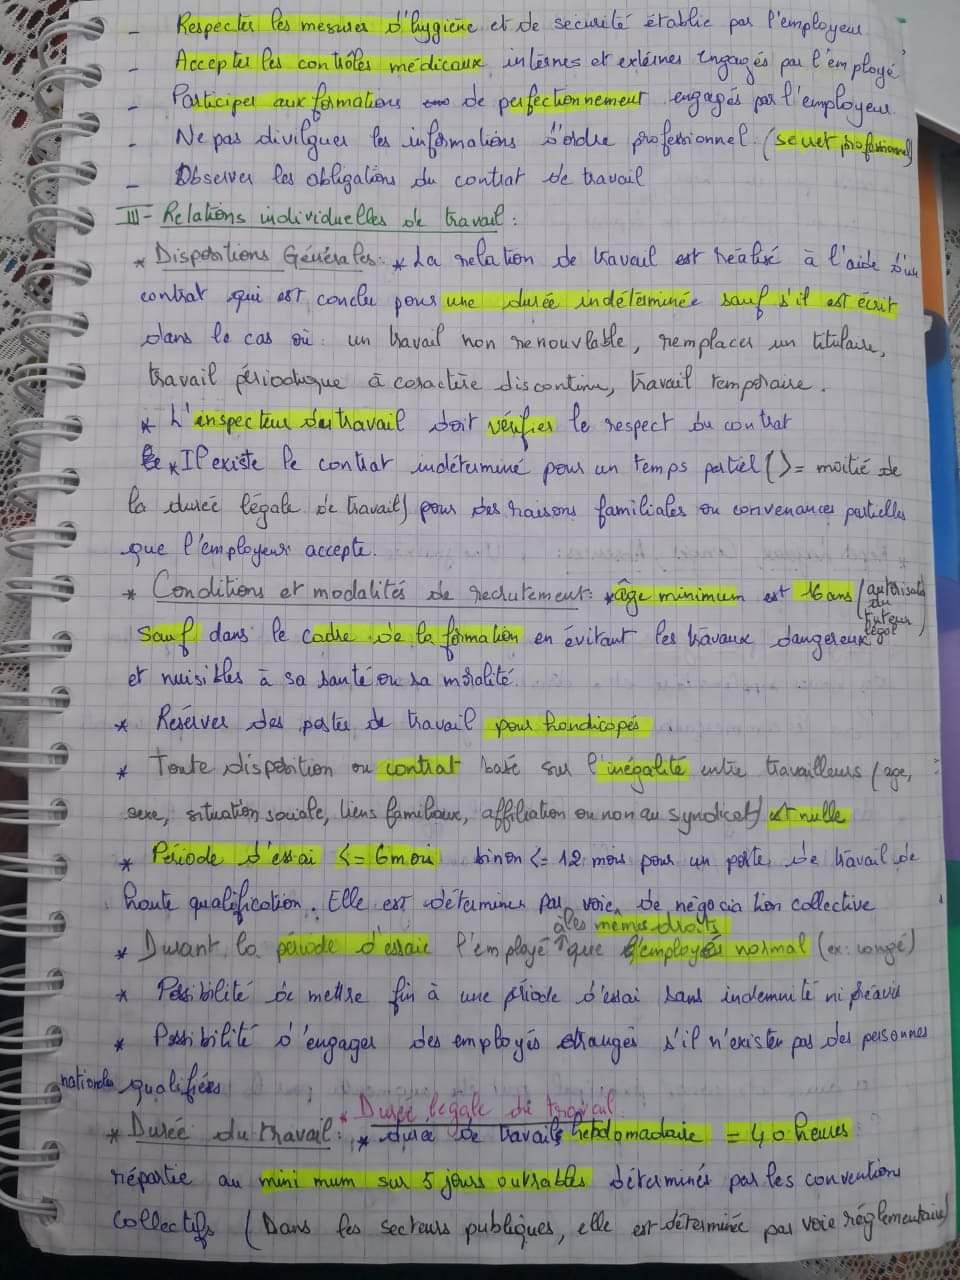 - Respecter les mesures d'hygiène et de sécurité établie par l'employeur
- Accepter les contrôles médicaux internes et extérnes engagés par l'employé
- Participer aux formations de perfectionnement engagés par l'employeur
- Ne pas divilguer les informations d'ordre professionnel. (secret professionnel)
- Observer les obligations du contrat de travail
III- Relations individuelles de travail :
* Dispositions Générales: * La relation de travail est réalisé à l'aide d'un
contrat qui est conclu pour une durée indéterminée sauf s'il est écrit
dans le cas où : un travail non renouvlable, remplacer un titulaire,
travail périodique à caractère discontinu, travail temporaire.
* L'inspecteur du travail doit vérifier le respect du contrat
* Il existe le contrat indéterminé pour un temps partiel (>= moitié de
la durée légale de travail) pour des raisons familiales ou convenances partielles
que l'employeur accepte.
* Conditions et modalités de recrutement: * âge minimum est 16 ans (autorisat du tuteur légal)
Sauf dans le cadre de la formation en évitant les travaux dangereux
et nuisibles à sa santé ou sa moralité.
* Réserver des postes de travail pour handicapés
* Toute disposition ou contrat basé sur l'inégalité entre travailleurs (age,
sexe, situation sociale, liens familiaux, affiliation ou non au syndicat) est nulle
* Période d'essai <= 6 mois sinon <= 12 mois pour un poste de travail de
haute qualification. Elle est détermines par voie de négociation collective
* Durant la période d'essaie l'employé à les mêmes droits que l'employés normal (ex: congé)
* Possibilité de mettre fin à une période d'essai sans indemnité ni préavis
* Possibilité d'engager des employés étrangés s'il n'existe pas des personnes
nationales qualifiées
* Durée légale du travail
* Durée du travail: * durée de travail hebdomadaire = 40 heures
répartie au minimum sur 5 jours ouvrables déterminés par les convention
collectifs (Dans les secteurs publiques, elle est déterminée par voie réglementaire)